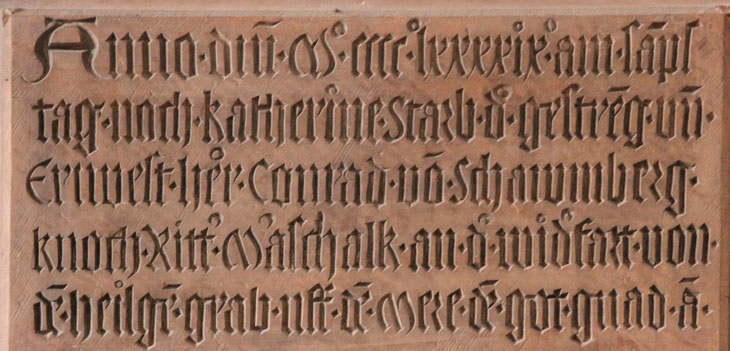 Anno · dnī · M° · cccc° · lxxxxix° · am · sāps
tag · nach · katherine · starb · d° · gestrēg · vn̄ ·
Ernvest · her° · Conrad · vō · Schawmberg ·
knoch · Ritt° · Maschalk · an · d° · widfart · von ·
dē · heilgē · grab · uff · dē · Mere · dē · got · gnad · ā ·